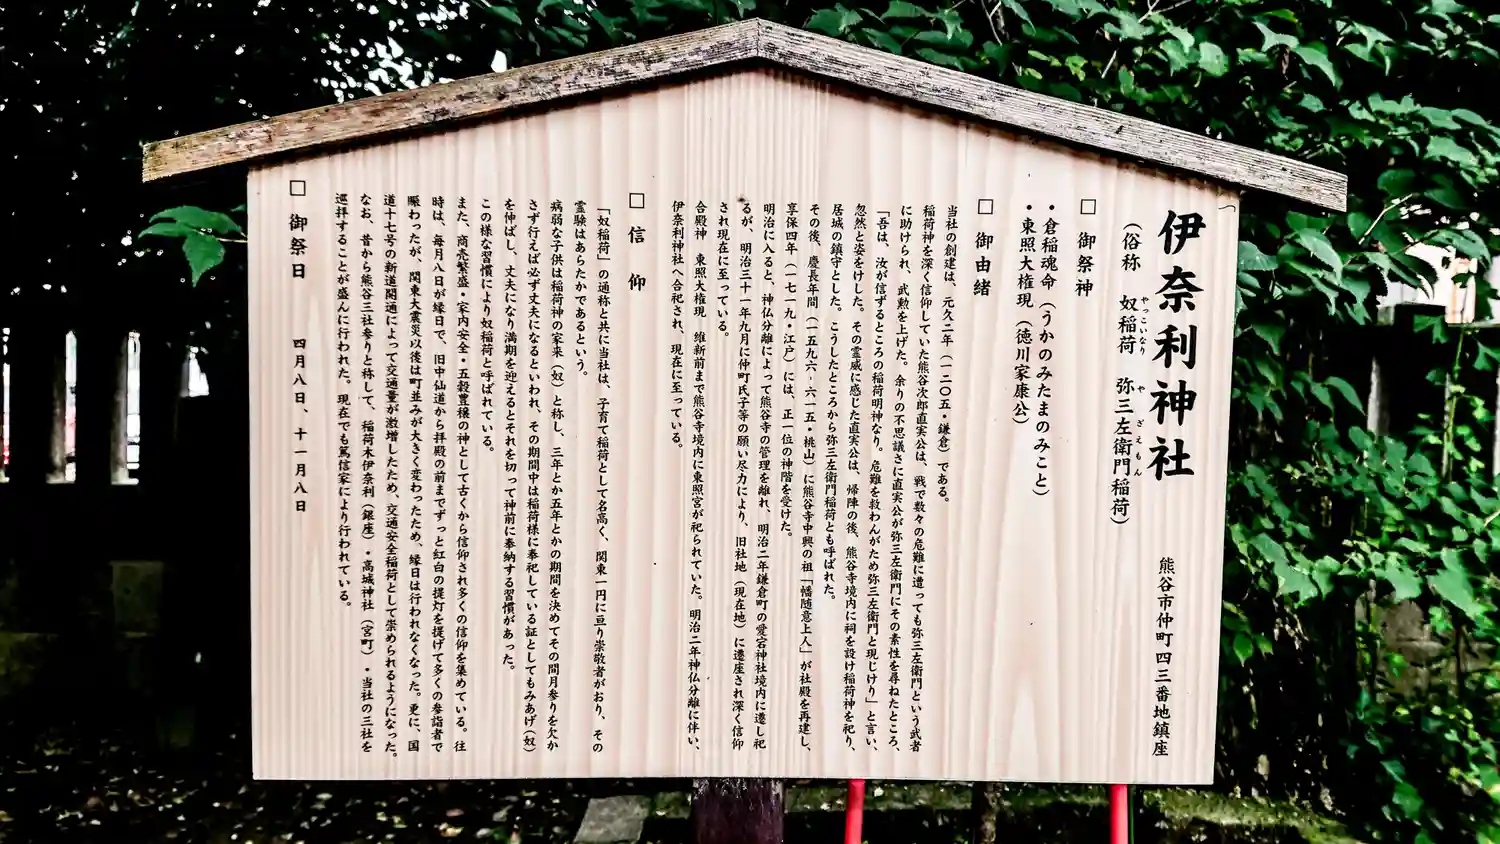 伊奈利神社
熊谷市仲町四三番地鎮座
（俗称　奴稲荷　弥三左衛門稲荷）
やっこいなり　やざえもん
□ 御祭神
・倉稲魂命（うかのみたまのみこと）
・東照大権現（徳川家康公）
□ 御由緒
当社の創建は、元久二年（一二〇五・鎌倉）である。
稲荷神を深く信仰していた熊谷次郎直実公は、戦で数々の危難に遭っても弥三左衛門という武者
に助けられ、武勲を上げた。余りの不思議さに直実公が弥三左衛門にその素性を尋ねたところ、
「吾は、汝が信ずるところの稲荷明神なり。危難を救わんがため弥三左衛門と現じけり」と言い、
忽然と姿をけした。その霊威に感じた直実公は、帰陣の後、熊谷寺境内に祠を設け稲荷神を祀り、
居城の鎮守とした。こうしたところから弥三左衛門稲荷とも呼ばれた。
その後、慶長年間（一五九六-六一五・桃山）に熊谷寺中興の祖「幡随意上人」が社殿を再建し、
享保四年（一七一九・江戸）には、正一位の神階を受けた。
明治に入ると、神仏分離によって熊谷寺の管理を離れ、明治二年鎌倉町の愛宕神社境内に遷し祀
るが、明治三十一年九月に仲町氏子等の願い尽力により、旧社地（現在地）に遷座され深く信仰
され現在に至っている。
合殿神　東照大権現　維新前まで熊谷寺境内に東照宮が祀られていた。明治二年神仏分離に伴い、
伊奈利神社へ合祀され、現在に至っている。
□ 信　仰
「奴稲荷」の通称と共に当社は、子育て稲荷として名高く、関東一円に亘り崇敬者がおり、その
霊験はあらたかであるという。
病弱な子供は稲荷神の家来（奴）と称し、三年とか五年とかの期間を決めてその間月参りを欠か
さず行えば必ず丈夫になるといわれ、その期間中は稲荷様に奉祀している証としてもみあげ（奴）
を伸ばし、丈夫になり満期を迎えるとそれを切って神前に奉納する習慣があった。
この様な習慣により奴稲荷と呼ばれている。
また、商売繁盛・家内安全・五穀豊穣の神として古くから信仰され多くの信仰を集めている。往
時は、毎月八日が縁日で、旧中仙道から拝殿の前までずっと紅白の提灯を提げて多くの参詣者で
賑わったが、関東大震災以後は町並みが大きく変わったため、縁日は行われなくなった。更に、国
道十七号の新道開通によって交通量が激増したため、交通安全稲荷として崇められるようになった。
なお、昔から熊谷三社参りと称して、稲荷木伊奈利（銀座）・高城神社（宮町）・当社の三社を
巡拝することが盛んに行われた。現在でも篤信家により行われている。
□ 御祭日　四月八日、十一月八日